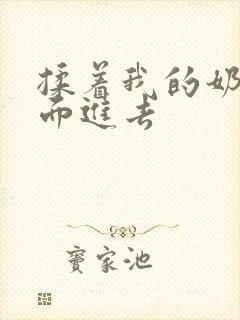 揉着我的奶
而进去
宝家池